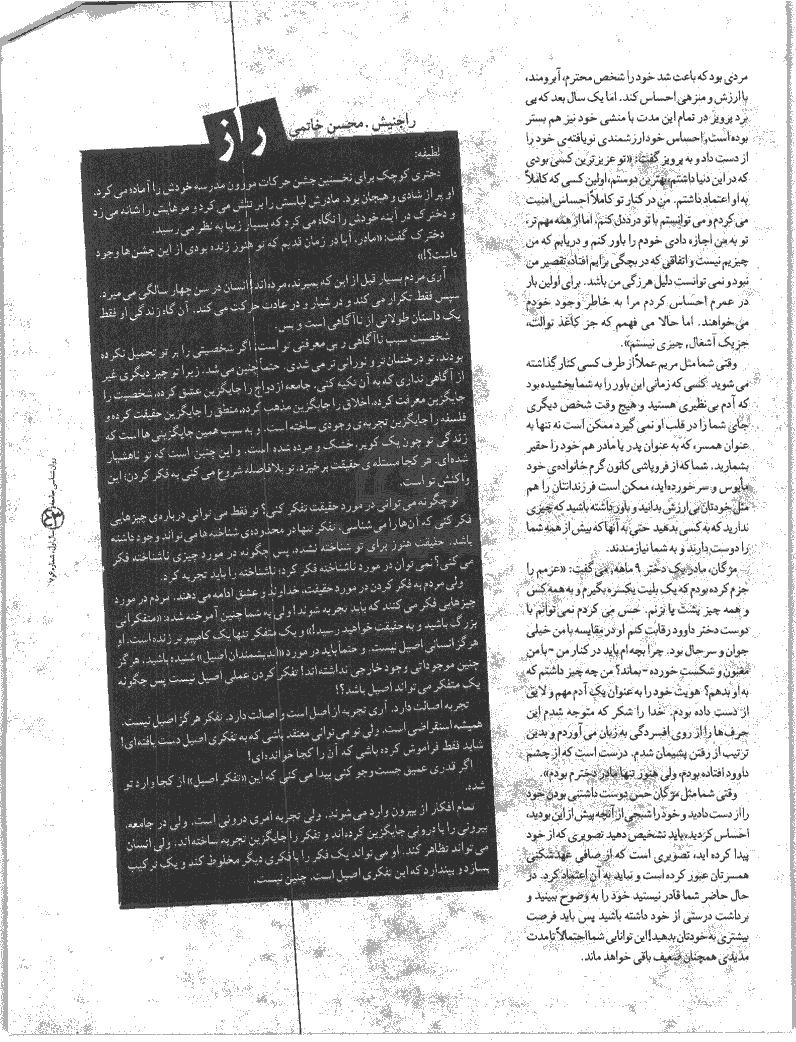 مردی بود که باعث شد خود را شخص محترم، آبرومند،
باارزش و منزهی احساس کند. اما یک سال بعد که پی
برد پرویز در تمام این مدت با منشی خود نیز هم بستر
بوده است، احساس خودارزشمندی نویافته‌ی خود را
از دست داد و به پرویز گفت: «تو عزیزترین کسی بودی
که در این دنیا داشتم، بهترین دوستم، اولین کسی که کاملاً
به او اعتماد داشتم. من در کنار تو کاملاً احساس امنیت
می‌کردم و می‌توانستم با تو درددل کنم. اما از همه مهم‌تر،
تو به من اجازه دادی خودم را باور کنم و دریابم که من
چیزیم نیست و اتفاقی که در بچگی برایم افتاد، تقصیر من
نبود و نمی توانست دلیل هرزگی من باشد. برای اولین بار
در عمرم احساس کردم مرا به خاطر وجود خودم
می‌خواهند. اما حالا می فهمم که جز کاغذ توالت،
جز یک آشغال, چیزی نیستم».
وقتی شما مثل مریم عملاً از طرف کسی کنار گذاشته
می‌شوید کسی که زمانی این باور را به شما بخشیده بود
که آدم بی‌نظیری هستید و هیچ وقت شخص دیگری
جای شما را در قلب او نمی گیرد ممکن است نه تنها به
عنوان همسر، که به عنوان پدر یا مادر هم خود را حقیر
بشمارید. شما که از فروپاشی کانون گرم خانواده‌ی خود
مأیوس و سرخورده‌اید، ممکن است فرزندانتان را هم
مثل خودتان بی‌ارزش بدانید و باور داشته باشید که چیزی
ندارید که به کسی بدهید حتی به آنها که بیش از همه شما
را دوست دارند و به شما نیازمندند.
مژگان، مادر یک دختر ۹ ماهه، می‌گفت: «عزمم را
جزم کرده بودم که یک بلیت یکسره بگیرم و به همه کس
و همه چیز پشت پا بزنم. حس می کردم نمی‌توانم با
دوست دختر داوود رقابت کنم. او در مقایسه با من خیلی
جوان و سرحال بود. چرا بچه‌ام باید در کنار من - با من
مغبون و شکست خورده - بماند؟ من چه چیز داشتم که
به او بدهم؟ هویت خود را به عنوان یک آدم مهم و لایق
از دست داده بودم. خدا را شکر که متوجه شدم این
حرف‌ها را از روی افسردگی به زبان می آوردم و بدین
ترتیب از رفتن پشیمان شدم. درست است که از چشم
داوود افتاده بودم، ولی هنوز تنها مادر دخترم بودم».
وقتی شما مثل مژگان حس دوست داشتنی بودن خود
را از دست دادید و خود را شبحی از آنچه پیش از این بودید،
احساس کردید، باید تشخیص دهید تصویری که از خود
پیدا کرده اید، تصویری است که از صافی عهدشکنی
همسرتان عبور کرده است و نباید به آن اعتماد کرد. در
حال حاضر شما قادر نیستید خود را به وضوح ببینید و
برداشت درستی از خود داشته باشید پس باید فرصت
بیشتری به خودتان بدهید! این توانایی شما احتمالاً تا مدت
مدیدی همچنان ضعیف باقی خواهد ماند.
راز
راجنیش . محسن خاتمی
لطیفه:
دختری کوچک برای نخستین جشن حرکات موزون مدرسه خودش را آماده می کرد.
او پر از شادی و هیجان بود. مادرش لباسش را بر تنش می کرد و موهایش را شانه می زد
و دخترک در آینه خودش را نگاه می کرد که بسیار زیبا به نظر می رسید.
دخترک گفت: «مادر، آیا در زمان قدیم که تو هنوز زنده بودی از این جشن ها وجود
داشت؟!»
آری مردم بسیار قبل از این که بمیرند، مرده‌اند! انسان در سن چهار سالگی می میرد.
سپس فقط تکرار می کند و در شیار و در عادت حرکت می کند. آن گاه زندگی او فقط
یک داستان طولانی از ناآگاهی است و بس.
شخصیت سبب ناآگاهی و بی معرفتی تو است. اگر شخصیتی را بر تو تحمیل نکرده
بودند، تو درخشان تر و نورانی تر می شدی. حتماً چنین می شد. زیرا تو چیز دیگری غیر
از آگاهی نداری که به آن تکیه کنی. جامعه ازدواج را جایگزین عشق کرده، شخصیت را
جایگزین معرفت کرده، اخلاق را جایگزین مذهب کرده، منطق را جایگزین حقیقت کرده و
فلسفه را جایگزین تجربه‌ی وجودی ساخته است. و به سبب همین جایگزینی ها است که
زندگی تو چون یک کویر، خشک و مرده شده است. و این چنین است که تو ناهشیار
شده‌ای. هر کجا مسئله‌ی حقیقت برخیزد، تو بلافاصله شروع می کنی به فکر کردن: این
واکنش تو است.
تو چگونه می توانی در مورد حقیقت تفکر کنی؟ تو فقط می توانی درباره‌ی چیزهایی
فکر کنی که آن‌ها را می شناسی. تفکر تنها در محدوده‌ی شناخته ها می تواند وجود داشته
باشد. حقیقت هنوز برای تو شناخته نشده، پس چگونه در مورد چیزی ناشناخته فکر
می کنی؟ نمی توان در مورد ناشناخته فکر کرد: ناشناخته را باید تجربه کرد.
ولی مردم به فکر کردن در مورد حقیقت، خداوند و عشق ادامه می دهند. مردم در مورد
چیزهایی فکر می کنند که باید تجربه شوند! ولی به شما چنین آموخته شده: «متفکرانی
بزرگ باشید و به حقیقت خواهید رسید!» و یک متفکر تنها یک کامپیوتر زنده است. او
هرگز انسانی اصیل نیست. و حتماً باید در مورد «اندیشمندان اصیل» شنیده باشید. هرگز
چنین موجوداتی وجود خارجی نداشته‌اند! تفکر کردن عملی اصیل نیست پس چگونه
یک متفکر می تواند اصیل باشد؟!
تجربه اصالت دارد. آری تجربه از اصل است و اصالت دارد. تفکر هرگز اصیل نیست.
همیشه استقراضی است. ولی تو می توانی معتقد باشی که به تفکری اصیل دست یافته‌ای!
شاید فقط فراموش کرده باشی که آن را کجا خوانده‌ای!
اگر قدری عمیق جست وجو کنی پیدا می کنی که این «تفکر اصیل» از کجا وارد تو
شده.
تمام افکار از بیرون وارد می شوند. ولی تجربه امری درونی است. ولی در جامعه،
بیرونی را با درونی جایگزین کرده‌اند و تفکر را جایگزین تجربه ساخته‌اند. ولی انسان
می تواند تظاهر کند. او می تواند یک فکر را با فکری دیگر مخلوط کند و یک ترکیب
بسازد و بپندارد که این تفکری اصیل است. چنین نیست.
روان‌شناسی